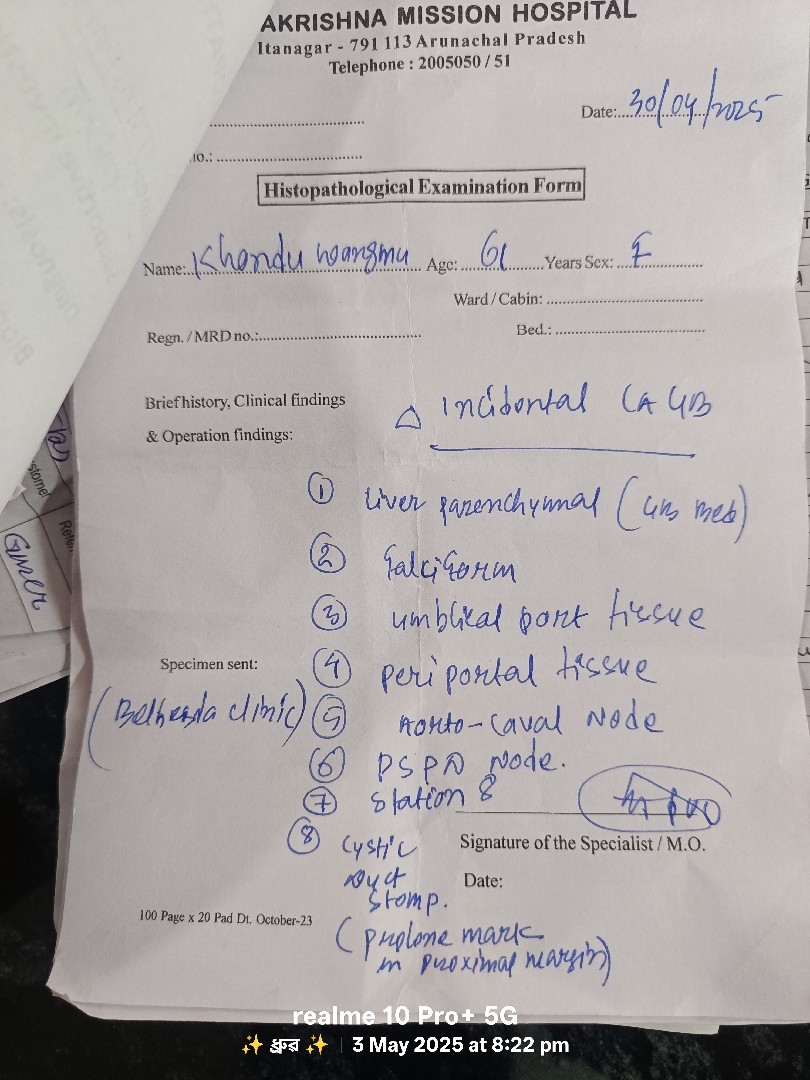 AKRISHNA MISSION HOSPITAL
Itanagar - 791 113 Arunachal Pradesh
Telephone : 2005050 / 51
Date: 30/04/2025
no.:
Histopathological Examination Form
Name: Khandu wangmu Age: 61 Years Sex: F
Ward / Cabin:
Regn. / MRD no.: Bed.:
Brief history, Clinical findings
& Operation findings:
△ Incidontal CA GB
① Liver parenchymal (GB Bed)
② falciform
③ umblical port tissue
④ periportal tissue
Specimen sent:
(Bethesda clinic)
⑤ Aorto-caval Node
⑥ PSPD Node.
⑦ Station 8
⑧ Cystic
Duct
Stomp.
(prolone mark
in proximal margin)
Signature of the Specialist / M.O.
Date:
100 Page x 20 Pad Dt. October-23
realme 10 Pro+ 5G
✨ ধ্রুব ✨ | 3 May 2025 at 8:22 pm